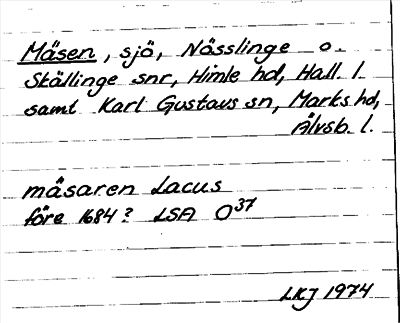 Mäsen, sjö, Nösslinge o.
Skällinge snr, Himle hd, Hall. l.
samt Karl Gustavs sn, Marks hd,
Älvsb. l.
mäsaren Lacus
före 1684? LSA O37
LKJ 1974